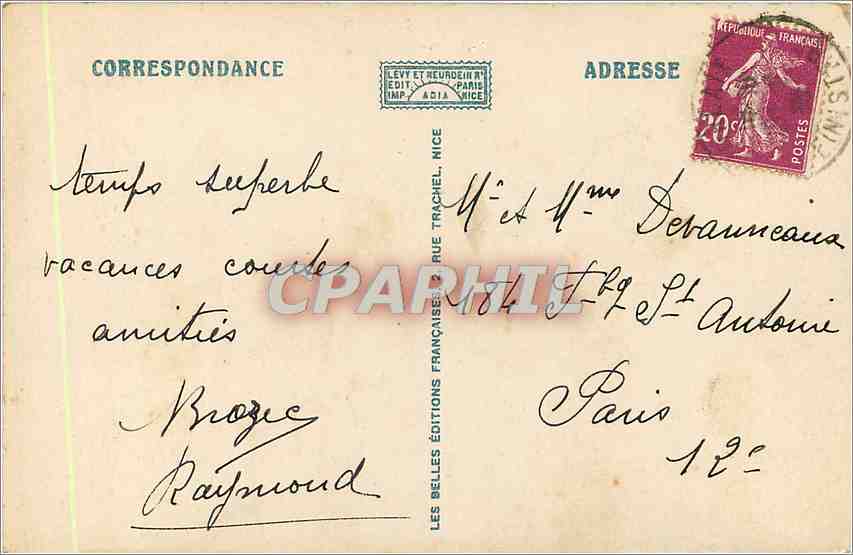 CORRESPONDANCE
LEVY ET NEURDEIN Rs
EDIT PARIS
IMP. ADIA NICE
ADRESSE
REPUBLIQUE FRANÇAISE
20c
POSTES
temps superbe
vacances courtes
amitiés
Brozec
Raymond
LES BELLES ÉDITIONS FRANÇAISES, 2, RUE TRACHEL, NICE
Mr et Mme Devanneaux
184 Fbg St Antoine
Paris
12e
CPARPHIL